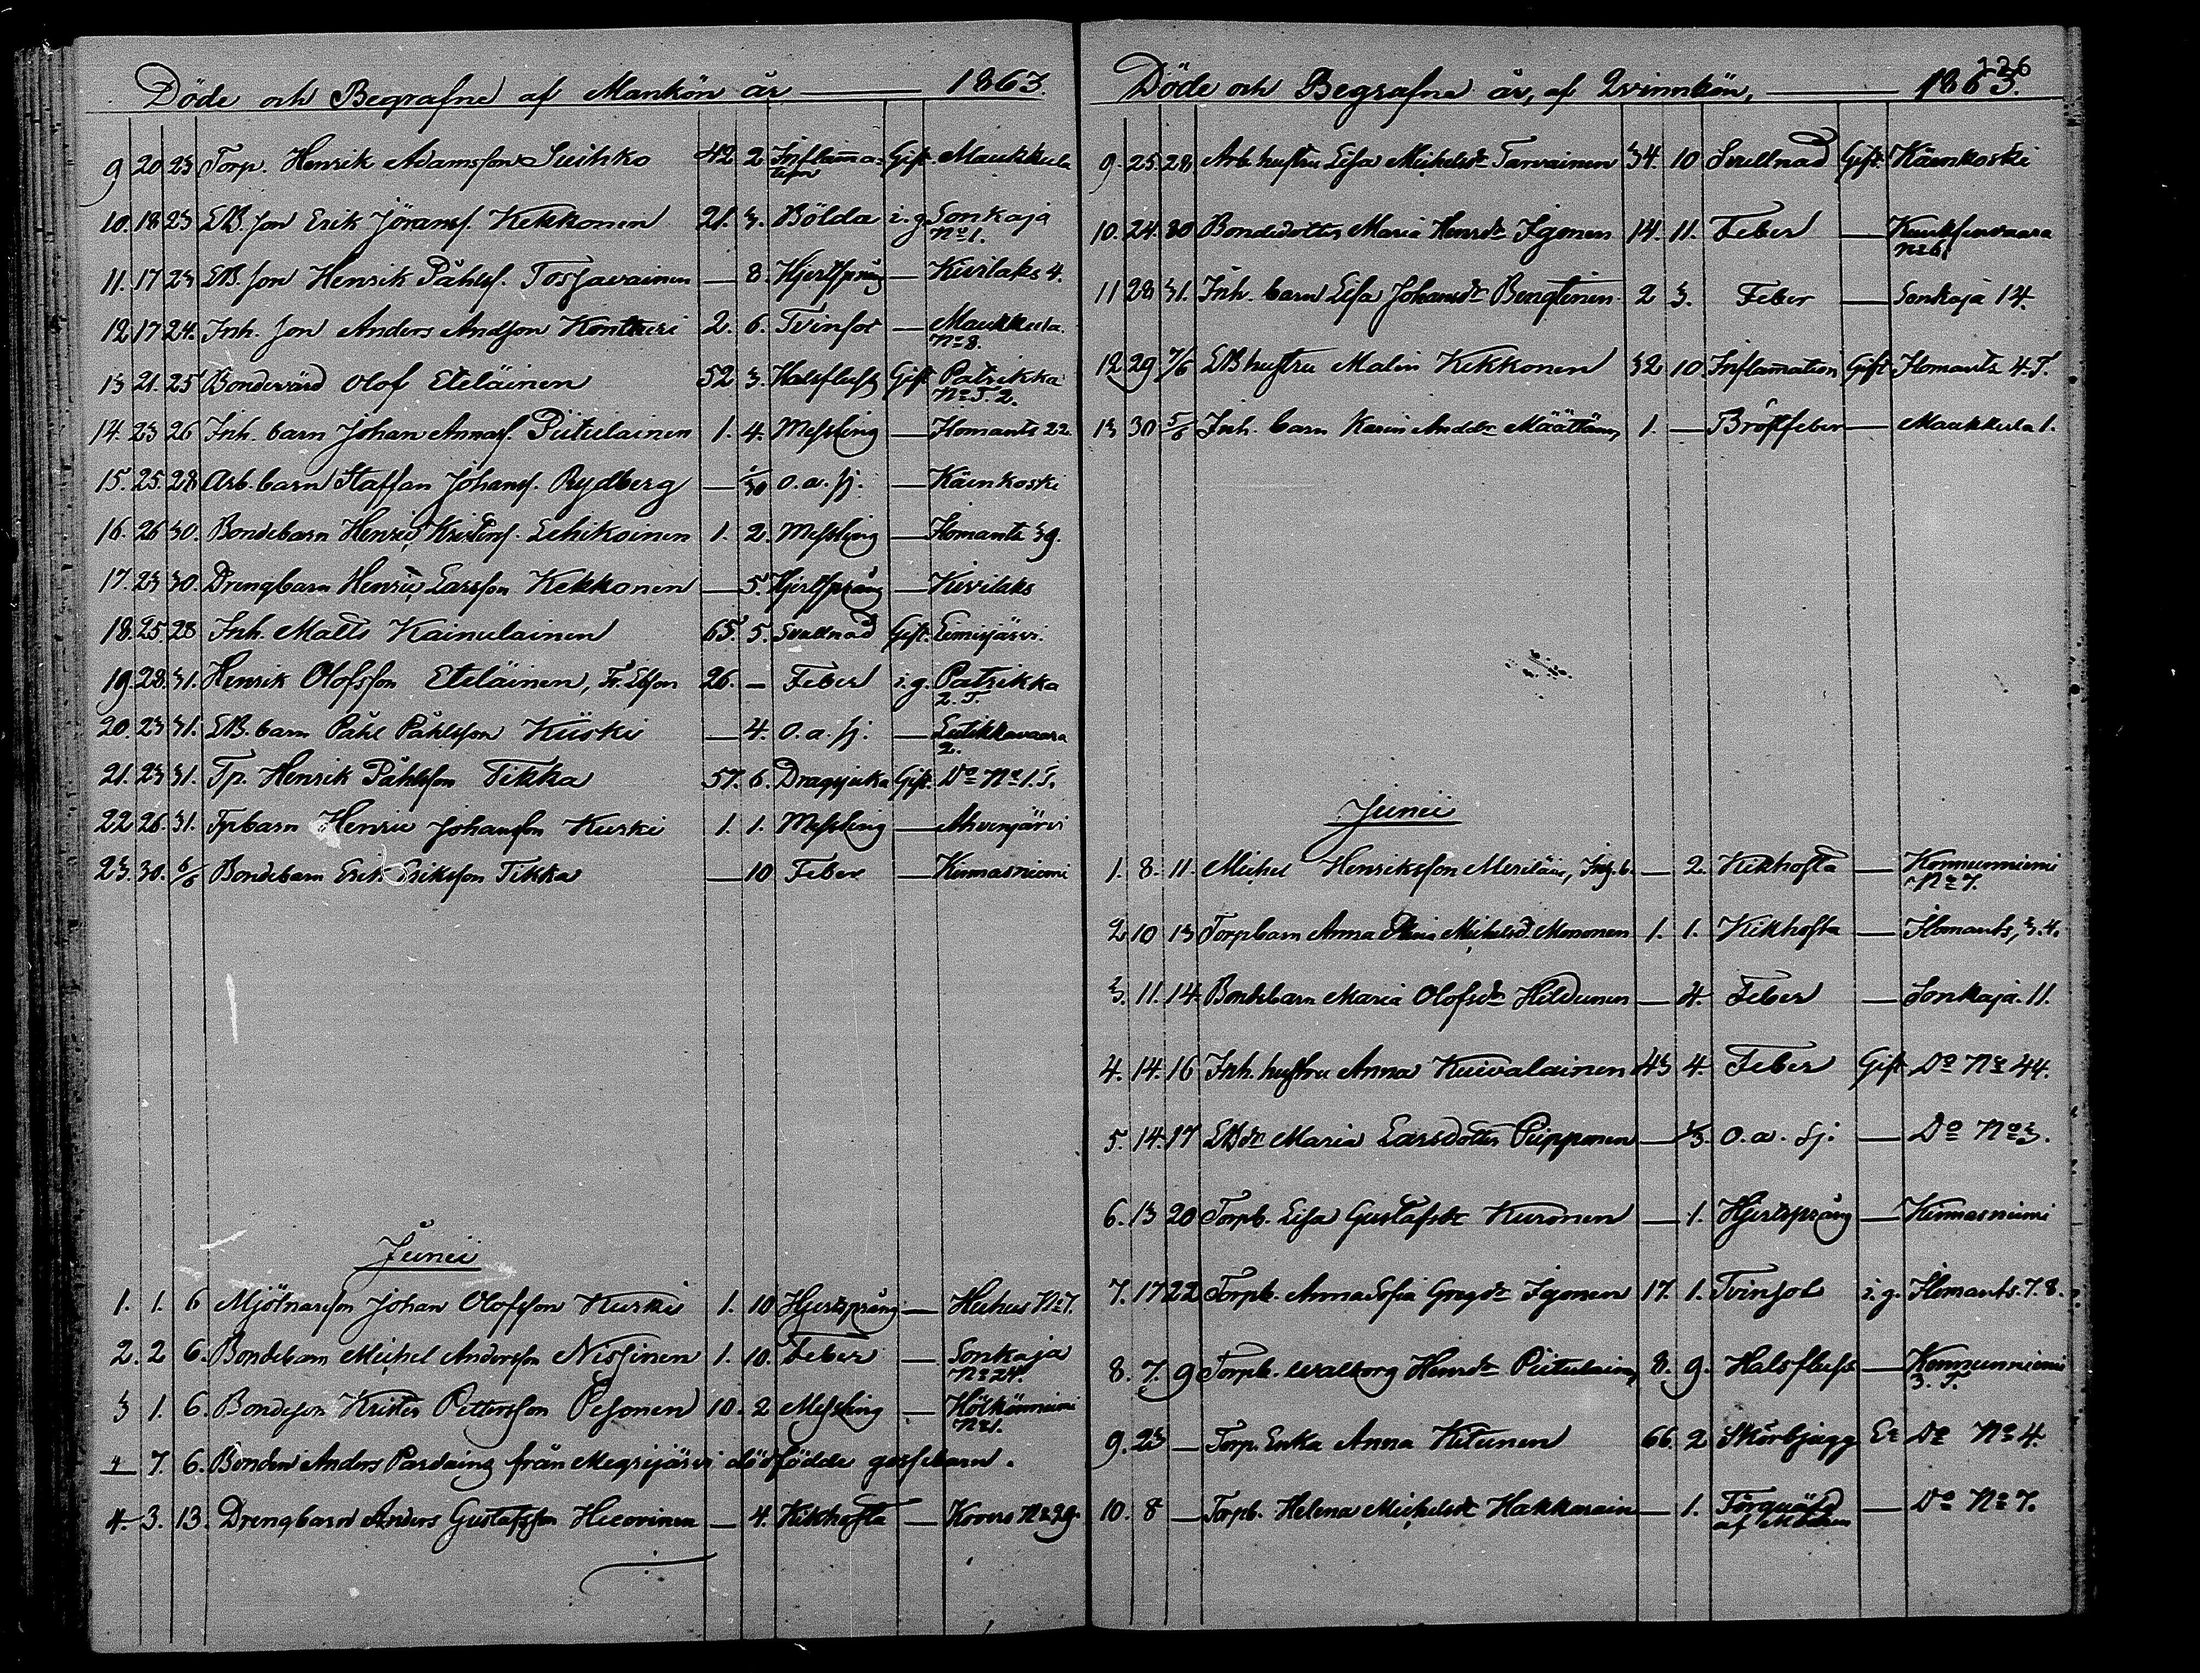 Döde och Begrafne af Mankön år 1863.
9 20 23 Torp. Henrik Adamsson Suihko 42 2 Inflama- Gift Maukkula
tion
10. 18 23 LB. son Erik Jöransf. Kekkonen 21. 3. Bölda i.g. Sonkaja
No 1.
11. 17 23 LB. son Henrik Påhlsf. Tossavainen — 8. Hjertsprång — Kivilaks 4.
12 17 24. Inh. son Anders Andsson Kontturi 2. 6. Tvinsot — Maukkula.
No 8.
13 21. 25 Bondevärd Olof Eteläinen 52 3. Halsflusß Gift Patrikka
No T. 2.
14. 23 26 Inh. barn Johan Annasf. Piitulainen 1. 4. Messling — Ilomants 22.
15. 25. 28 Arb. barn Staffan Johansf. Rydberg — 1/30 o. a. sj. — Käenkoski
16. 26 30. Bondebarn Henric Kristersf. Lehikoinen 1. 2. Messling — Ilomants 39.
17. 23 30. Drengbarn Henric Larsson Kekkonen — 5 Hjertsprång — Kivilaks
18. 25 28 Inh. Matts Kainulainen 65. 5. Svullnad Gift. Liusjärvi.
19. 28. 31. Henrik Olofsson Eteläinen, 26. — Feber i.g. Patrikka
2. T.
20. 23 31. LB. barn Påhl Påhlsson Kiiski — 4. o. a. sj. — Lutikkavaara
2.
21. 23 31. Tp. Henrik Påhlsson Tikka 57. 6. Dragsjuka Gift. Do No 1. T.
22 26. 31. Tpbarn Henric Johansson Kurki 1. 1. Messling — Ahvenjärvi
23. 30. 6/6 Bondebarn Erik Eriksson Tikka — 10 Feber — Kinnasniemi
Junii
1. 1. 6 Mjölnareson Johan Olofsson Kurki 1. 10 Hjertsprång — Huhus No 7.
2. 2 6. Bondebarn Michel Andersson Nissinen 1. 10. Feber — Sonkaja
No 24.
3 1. 6. Bondeson Krister Pettersson Pesonen 10. 2 Messling — Hölkönniemi
No 1.
4 7. 6. Bonden Anders Pardaing från Megrijärvi dödfödde gossebarn.
4. 3. 13. Drengbarn Anders Gustafsson Hirvonen — 4. Kikhosta — Kovero No 29.
126
Döde och Begrafna år, af Qvinnkön, 1863.
9. 25. 28. Arb. hustru Lisa Michelsdr Tarvainen 34. 10 Svullnad Gift. Käenkoski
10. 24. 30 Bondedotter Maria Henrdr Igonen 14. 11. Feber — Kuuksenvaara
No 6.
11 28 31. Inh. barn Lisa Johansdr Bengtinen 2 3. Feber — Sonkaja 14.
12 29 7/6 LB hustru Malin Kekkonen 32 10. Inflamation Gift Ilomants 4. T.
13 30 5/6 Inh. barn Karin Andrdr Määttänen 1. — Bröstfeber — Maukkula 1.
Junii
1. 8. 11. Michel Henriksson Meriläin, Inh. b. — 2. Kikhosta — Konnunniemi
No 7.
2 10 13 Torpbarn Anna Maria Michelsd. Mononen 1. 1. Kikhosta — Ilomants, 3. 4.
3. 11. 14. Bondebarn Maria Olofsdr Hildunen — 4. Feber — Sonkaja. 11.
4. 14. 16 Inh. hustru Anna Kuivalainen 43 4. Feber Gift Do No 44.
5. 14. 17 LBdr Maria Larsdotter Piipponen — 1/3. o. a. sj. — Do No 3.
6. 13 20 Torpb. Lisa Gustafsdr Kuronen — 1. Hjertsprång — Kinnasniemi
7. 17 22 Torpb. Anna Sofia Gregdr Igonen 17. 1. Tvinsot i. g. Ilomants. 7. 8.
8. 7. 9 Torpb. Walborg Henrdr Piitulain, 8. 9. Halsflusß — Konnunniemi
3. T.
9. 23 — Torp. Enka Anna Kitunen 66. 2 Skörbjugg Ea Do No 4.
10. 8 — Torpb. Helena Michelsdr Hakkarain — 1. Förqväfd — Do No 7.
af Modren